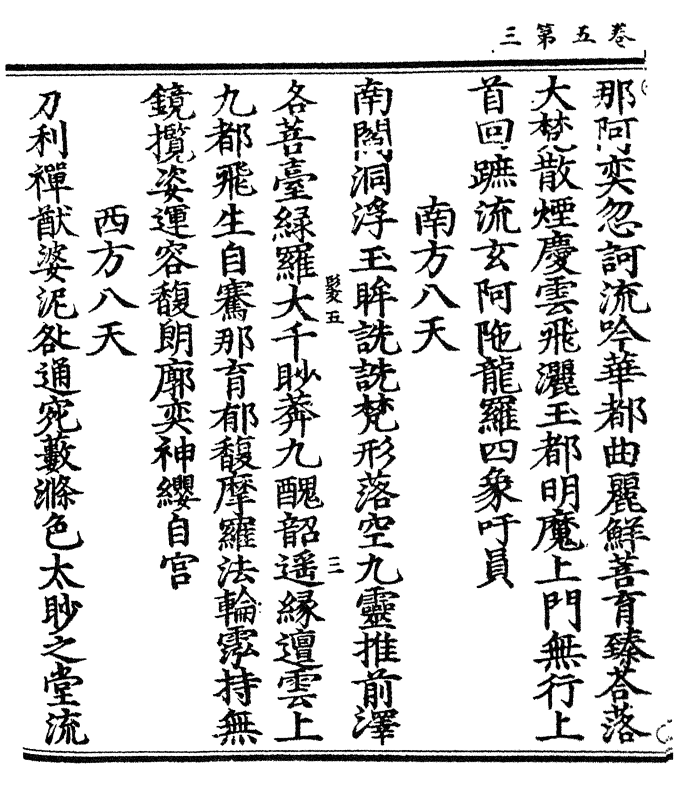 卷五第三
那阿奕忽訶流吟華都曲麗鮮菩育臻荅落
大梵散煙慶雲飛灑玉都明魔上門無行上
首回蹠流玄阿陁龍羅四象吁員
南方八天
南閻洞浮玉眸詵詵梵形落空九靈推前澤
髮五 三
各菩臺緑羅大千眇莽九醜韶遥縁邅雲上
九都飛生自騫那育郁馥摩羅法輪霐持無
鏡攬姿運容馥朗廓奕神纓自宮
西方八天
刀利禪猷婆泥咎通宛藪滌色太眇之堂流